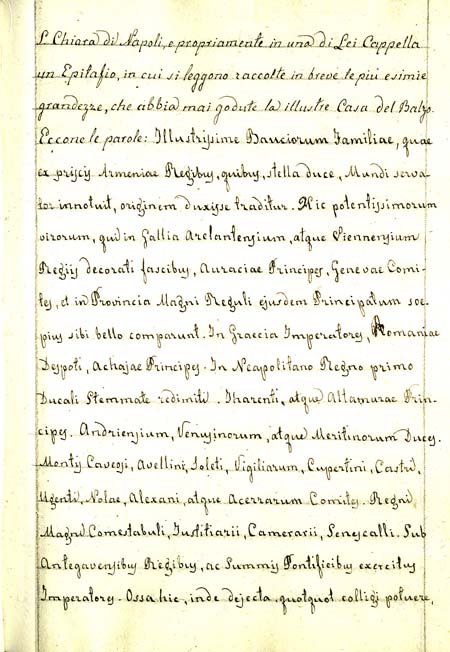 S. Chiara di Napoli, e propriamente in una di Lei Cappella
un Epitafio, in cui si leggono raccolte in breve le più esimie
grandezze, che abbia mai godute la illustre Casa del Balzo.
Eccone le parole: Illustrissime Bauciorum Familiae, quae
ex priscis Armeniae Regibus, quibus, stella duce, Mundi serva-
tor innotuit, originem duxisse traditur. Hic potentissimorum
virorum, qui in Gallia Arelantensium, atque Viennensium
Regiis decorati fascibus, Auraciae Principes, Genevae Comi-
tes, et in Provincia Magni Reguli ejusdem Principatum soe-
pius sibi bello comparunt. In Graecia Imperatores, Romaniae
Despoti, Achajae Principes. In Neapolitano Regno primo
Ducali Stemmate redimiti. Tharenti, atque Altamurae Prin-
cipes. Andriensium, Venusinorum, atque Meritinorum Duces.
Montis Caveosi, Avellini, Soleti, Vigiliarum, Cupertini, Castri,
Ugenti, Nolae, Alexani, atque Acerrarum Comites. Regni
Magni Comestabuli, Justitiarii, Camerarii, Senescalli. Sub
Antegavensibus Regibus, ac Summis Pontificibus exercitus
Imperatores. Ossa hic, inde dejecta quotquot colligi potuere,